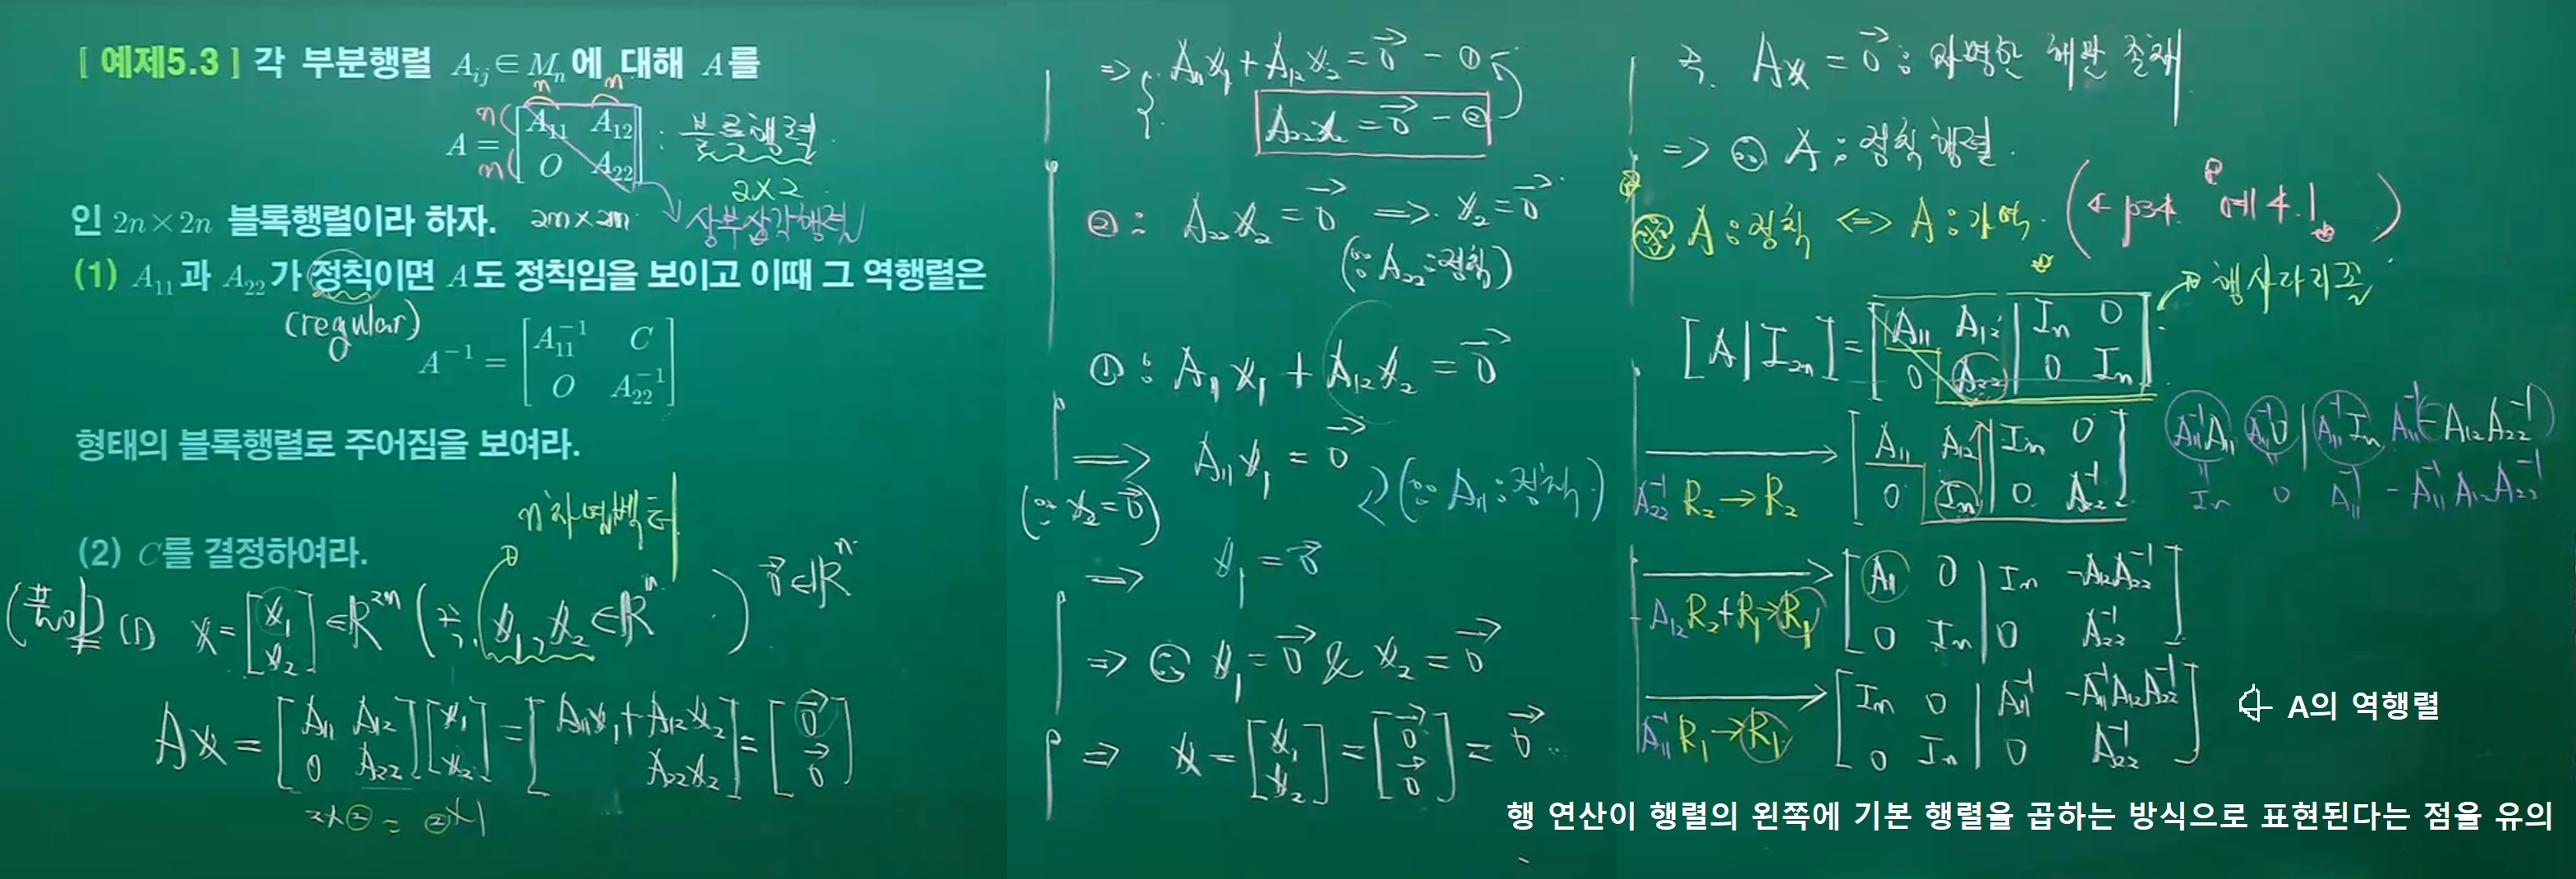 [ 예제5.3 ] 각 부분행렬 A_{ij} ∈ M_n에 대해 A를
n n
n
n
A = [A_{11} A_{12}; O A_{22}] : 블록행렬
2×2
인 2n×2n 블록행렬이라 하자. 2n×2n 상부삼각행렬
(1) A_{11}과 A_{22}가 정칙이면 A도 정칙임을 보이고 이때 그 역행렬은
(regular)
A^{-1} = [A_{11}^{-1} C; O A_{22}^{-1}]
형태의 블록행렬로 주어짐을 보여라.
n차 열벡터
(2) C를 결정하여라.
(풀이) (1) x = [x_1; x_2] ∈ R^{2n} (단, x_1, x_2 ∈ R^n) \vec{0} ∈ R^n
Ax = [A_{11} A_{12}; 0 A_{22}][x_1; x_2] = [A_{11}x_1 + A_{12}x_2; A_{22}x_2] = [\vec{0}; \vec{0}]
2×② = ②×1
⇒ { A_{11}x_1 + A_{12}x_2 = \vec{0} - ①
A_{22}x_2 = \vec{0} - ②
② : A_{22}x_2 = \vec{0} ⇒ x_2 = \vec{0}
(∵ A_{22} : 정칙)
① : A_{11}x_1 + A_{12}x_2 = \vec{0}
⇒ A_{11}x_1 = \vec{0}
(∵ x_2 = \vec{0}) (∵ A_{11} : 정칙)
⇒ x_1 = \vec{0}
⇒ ∴ x_1 = \vec{0} & x_2 = \vec{0}
⇒ x = [x_1; x_2] = [\vec{0}; \vec{0}] = \vec{0}
즉, Ax = \vec{0} : 자명한 해만 존재
⇒ ∴ A : 정칙행렬.
※ A : 정칙 ⇔ A : 가역. (← p34. 예4.1)
행사다리꼴
[A | I_{2n}] = [A_{11} A_{12} | I_n 0; 0 A_{22} | 0 I_n]
A_{22}^{-1} R_2 → R_2 [A_{11} A_{12} | I_n 0; 0 I_n | 0 A_{22}^{-1}]
A_{11}^{-1}A_{11} A_{11}^{-1}0 | A_{11}^{-1}I_n A_{11}^{-1}(-A_{12}A_{22}^{-1})
I_n 0 A_{11}^{-1} -A_{11}^{-1}A_{12}A_{22}^{-1}
-A_{12}R_2 + R_1 → R_1 [A_{11} 0 | I_n -A_{12}A_{22}^{-1}; 0 I_n | 0 A_{22}^{-1}]
A_{11}^{-1} R_1 → R_1 [I_n 0 | A_{11}^{-1} -A_{11}^{-1}A_{12}A_{22}^{-1}; 0 I_n | 0 A_{22}^{-1}] A의 역행렬
행 연산이 행렬의 왼쪽에 기본 행렬을 곱하는 방식으로 표현된다는 점을 유의